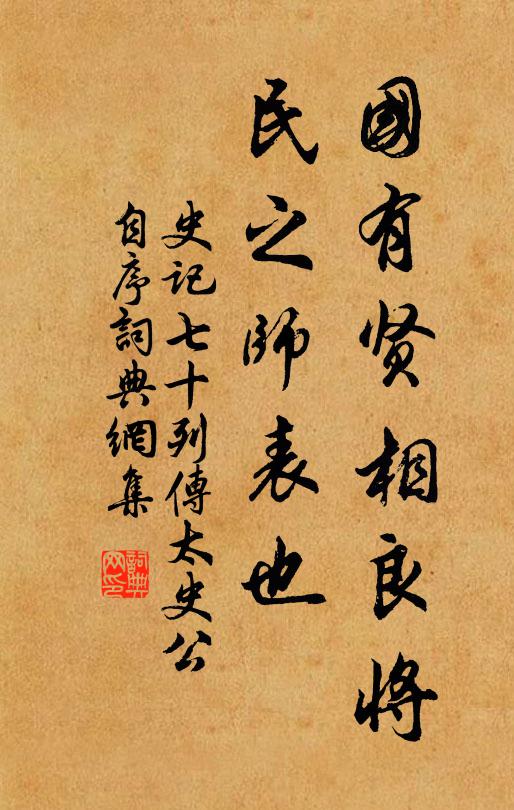 國有贤相良将
民之師表也
史记七十列傳太史公
自序詞典網集
詞典
网印